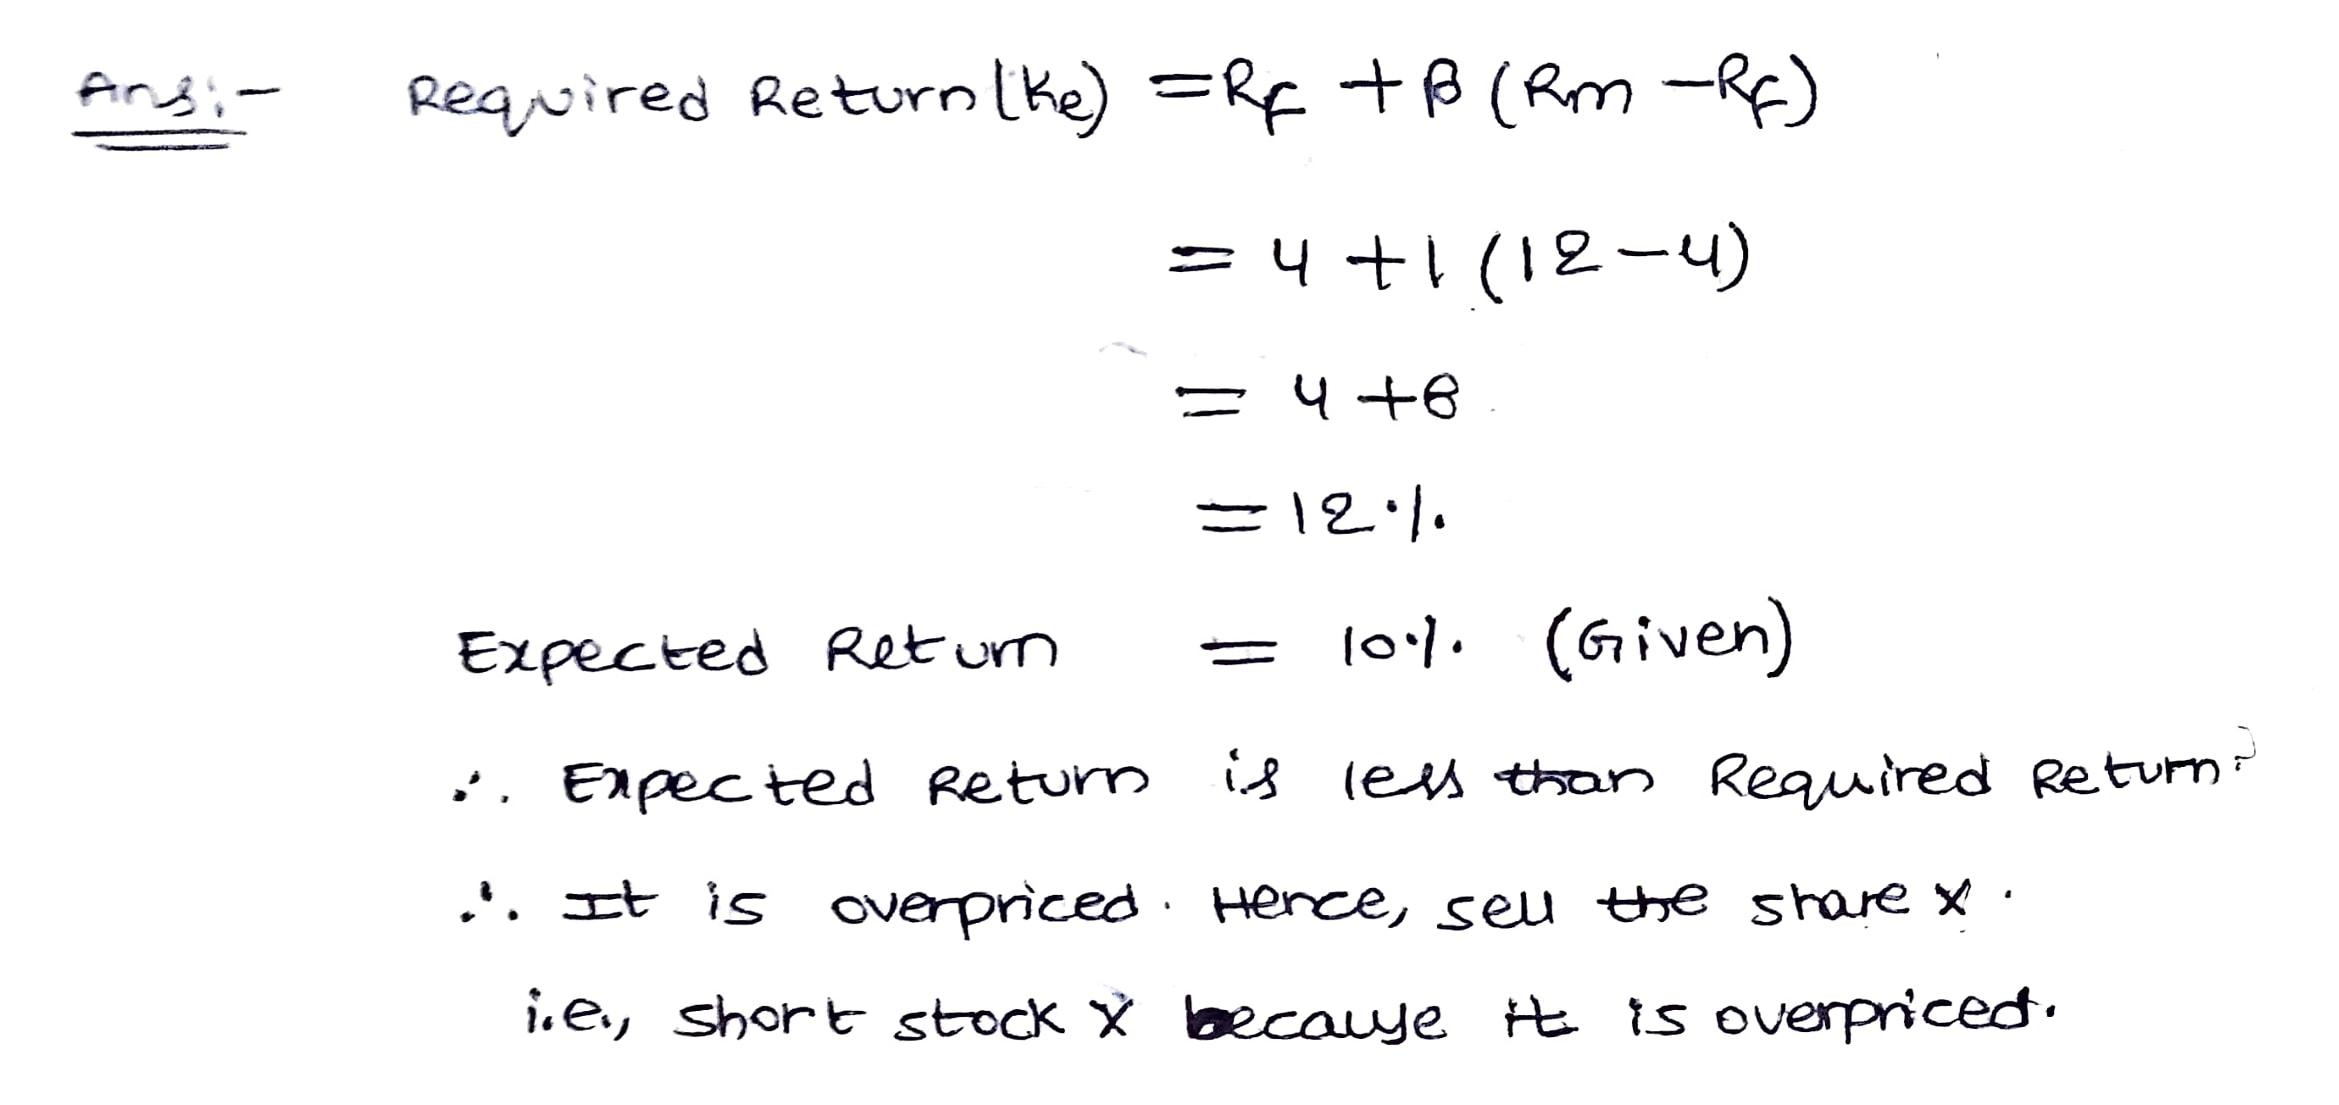 Ans:- Required Return (Ke) = Rf + β (Rm - Rf)
= 4 + 1 (12 - 4)
= 4 + 8
= 12%
Expected Return = 10%. (Given)
∴ Expected Return is less than Required Return.
∴ It is overpriced. Hence, sell the share X.
i.e., short stock X because it is overpriced.